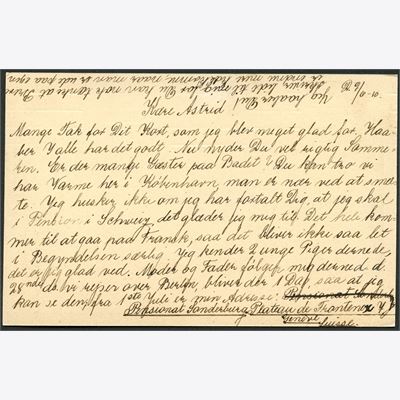 D. 16/6-10.
Kære Astrid!
Mange Tak for Dit Kort, som jeg blev meget glad for. Haa-
ber I alle har det godt. Nu nyder Du vel rigtig Somme-
ren. Er der mange Gæster paa Badet? Du kan tro vi
har Varme her i København, man er nær ved at smel-
te. Jeg husker ikke om jeg har fortalt Dig, at jeg skal
i Pension i Schweiz, det glæder jeg mig til. Det hele kom-
mer til at gaa paa Fransk, saa det bliver ikke saa let
i Begyndelsen særlig. Jeg kender 2 unge Piger dernede,
det er jeg glad ved. Moder og Fader følger mig derned d.
28nde da vi rejser over Berlin, bliver der 1 Dag, saa at jeg
kan se den, fra 1ste Juli er min Adresse:
Pensionat Sonderburg Plateau de Frontenex
Genève
Suisse.
Jeg haaber Du
skriver lidt til mig, for Du kan nok tænke at Breve
er endnu mere velkomne naar man er ude paa egen